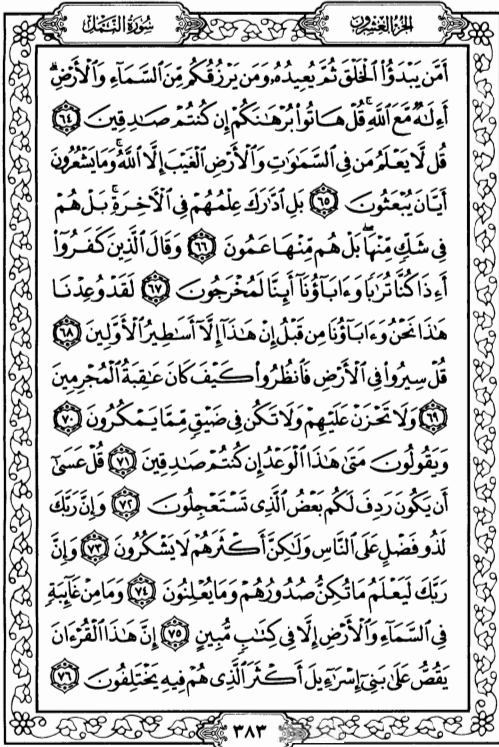 سُورَةُ النَّمْلِ الجُزْءُ العِشْرُونَ
أَمَّن يَبْدَؤُا۟ ٱلْخَلْقَ ثُمَّ يُعِيدُهُۥ وَمَن يَرْزُقُكُم مِّنَ ٱلسَّمَآءِ وَٱلْأَرْضِ ۗ
أَءِلَٰهٌ مَّعَ ٱللَّهِ ۚ قُلْ هَاتُوا۟ بُرْهَٰنَكُمْ إِن كُنتُمْ صَٰدِقِينَ ٦٤
قُل لَّا يَعْلَمُ مَن فِى ٱلسَّمَٰوَٰتِ وَٱلْأَرْضِ ٱلْغَيْبَ إِلَّا ٱللَّهُ ۚ وَمَا يَشْعُرُونَ
أَيَّانَ يُبْعَثُونَ ٦٥ بَلِ ٱدَّٰرَكَ عِلْمُهُمْ فِى ٱلْءَاخِرَةِ ۚ بَلْ هُمْ
فِى شَكٍّ مِّنْهَا ۖ بَلْ هُم مِّنْهَا عَمُونَ ٦٦ وَقَالَ ٱلَّذِينَ كَفَرُوٓا۟
أَءِذَا كُنَّا تُرَٰبًا وَءَابَآؤُنَآ أَئِنَّا لَمُخْرَجُونَ ٦٧ لَقَدْ وُعِدْنَا
هَٰذَا نَحْنُ وَءَابَآؤُنَا مِن قَبْلُ إِنْ هَٰذَآ إِلَّآ أَسَٰطِيرُ ٱلْأَوَّلِينَ ٦٨
قُلْ سِيرُوا۟ فِى ٱلْأَرْضِ فَٱنظُرُوا۟ كَيْفَ كَانَ عَٰقِبَةُ ٱلْمُجْرِمِينَ
٦٩ وَلَا تَحْزَنْ عَلَيْهِمْ وَلَا تَكُن فِى ضَيْقٍ مِّمَّا يَمْكُرُونَ ٧٠
وَيَقُولُونَ مَتَىٰ هَٰذَا ٱلْوَعْدُ إِن كُنتُمْ صَٰدِقِينَ ٧١ قُلْ عَسَىٰٓ
أَن يَكُونَ رَدِفَ لَكُم بَعْضُ ٱلَّذِى تَسْتَعْجِلُونَ ٧٢ وَإِنَّ رَبَّكَ
لَذُو فَضْلٍ عَلَى ٱلنَّاسِ وَلَٰكِنَّ أَكْثَرَهُمْ لَا يَشْكُرُونَ ٧٣ وَإِنَّ
رَبَّكَ لَيَعْلَمُ مَا تُكِنُّ صُدُورُهُمْ وَمَا يُعْلِنُونَ ٧٤ وَمَا مِنْ غَآئِبَةٍ
فِى ٱلسَّمَآءِ وَٱلْأَرْضِ إِلَّا فِى كِتَٰبٍ مُّبِينٍ ٧٥ إِنَّ هَٰذَا ٱلْقُرْءَانَ
يَقُصُّ عَلَىٰ بَنِىٓ إِسْرَٰٓءِيلَ أَكْثَرَ ٱلَّذِى هُمْ فِيهِ يَخْتَلِفُونَ ٧٦
٣٨٣